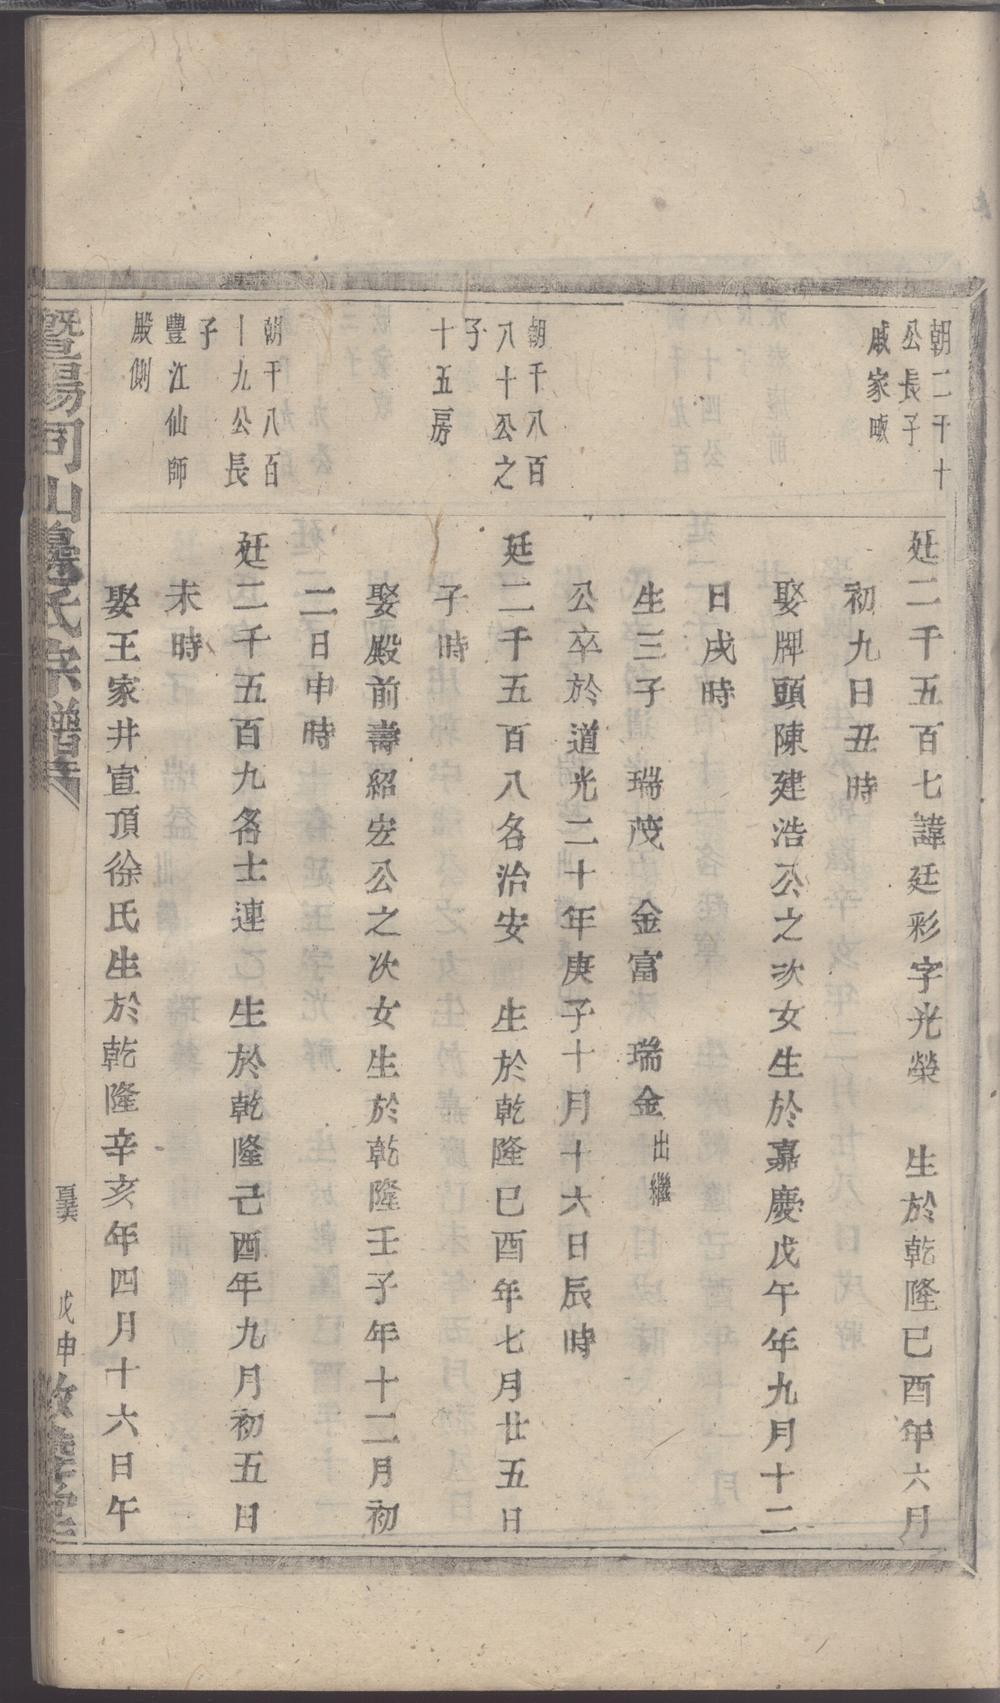 朝二千十
公長子
戚家畈
廷二千五百七諱廷彩字光榮 生於乾隆巳酉年六月
初九日丑時
娶牌頭陳建浩公之次女生於嘉慶戊午年九月十二
日戌時
生三子 瑞茂 金富 瑞金出繼
公卒於道光二十年庚子十月十六日辰時
朝千八百
八十公之
子
十五房
廷二千五百八名治安 生於乾隆巳酉年七月廿五日
子時
娶殿前壽紹宏公之次女生於乾隆壬子年十二月初
二日申時
朝千八百
一九公長
子
豐江仙師
殿側
廷二千五百九名士連 生於乾隆己酉年九月初五日
未時
娶王家井宣頂徐氏生於乾隆辛亥年四月十六日午
暨陽同山邊氏宗譜
戊申